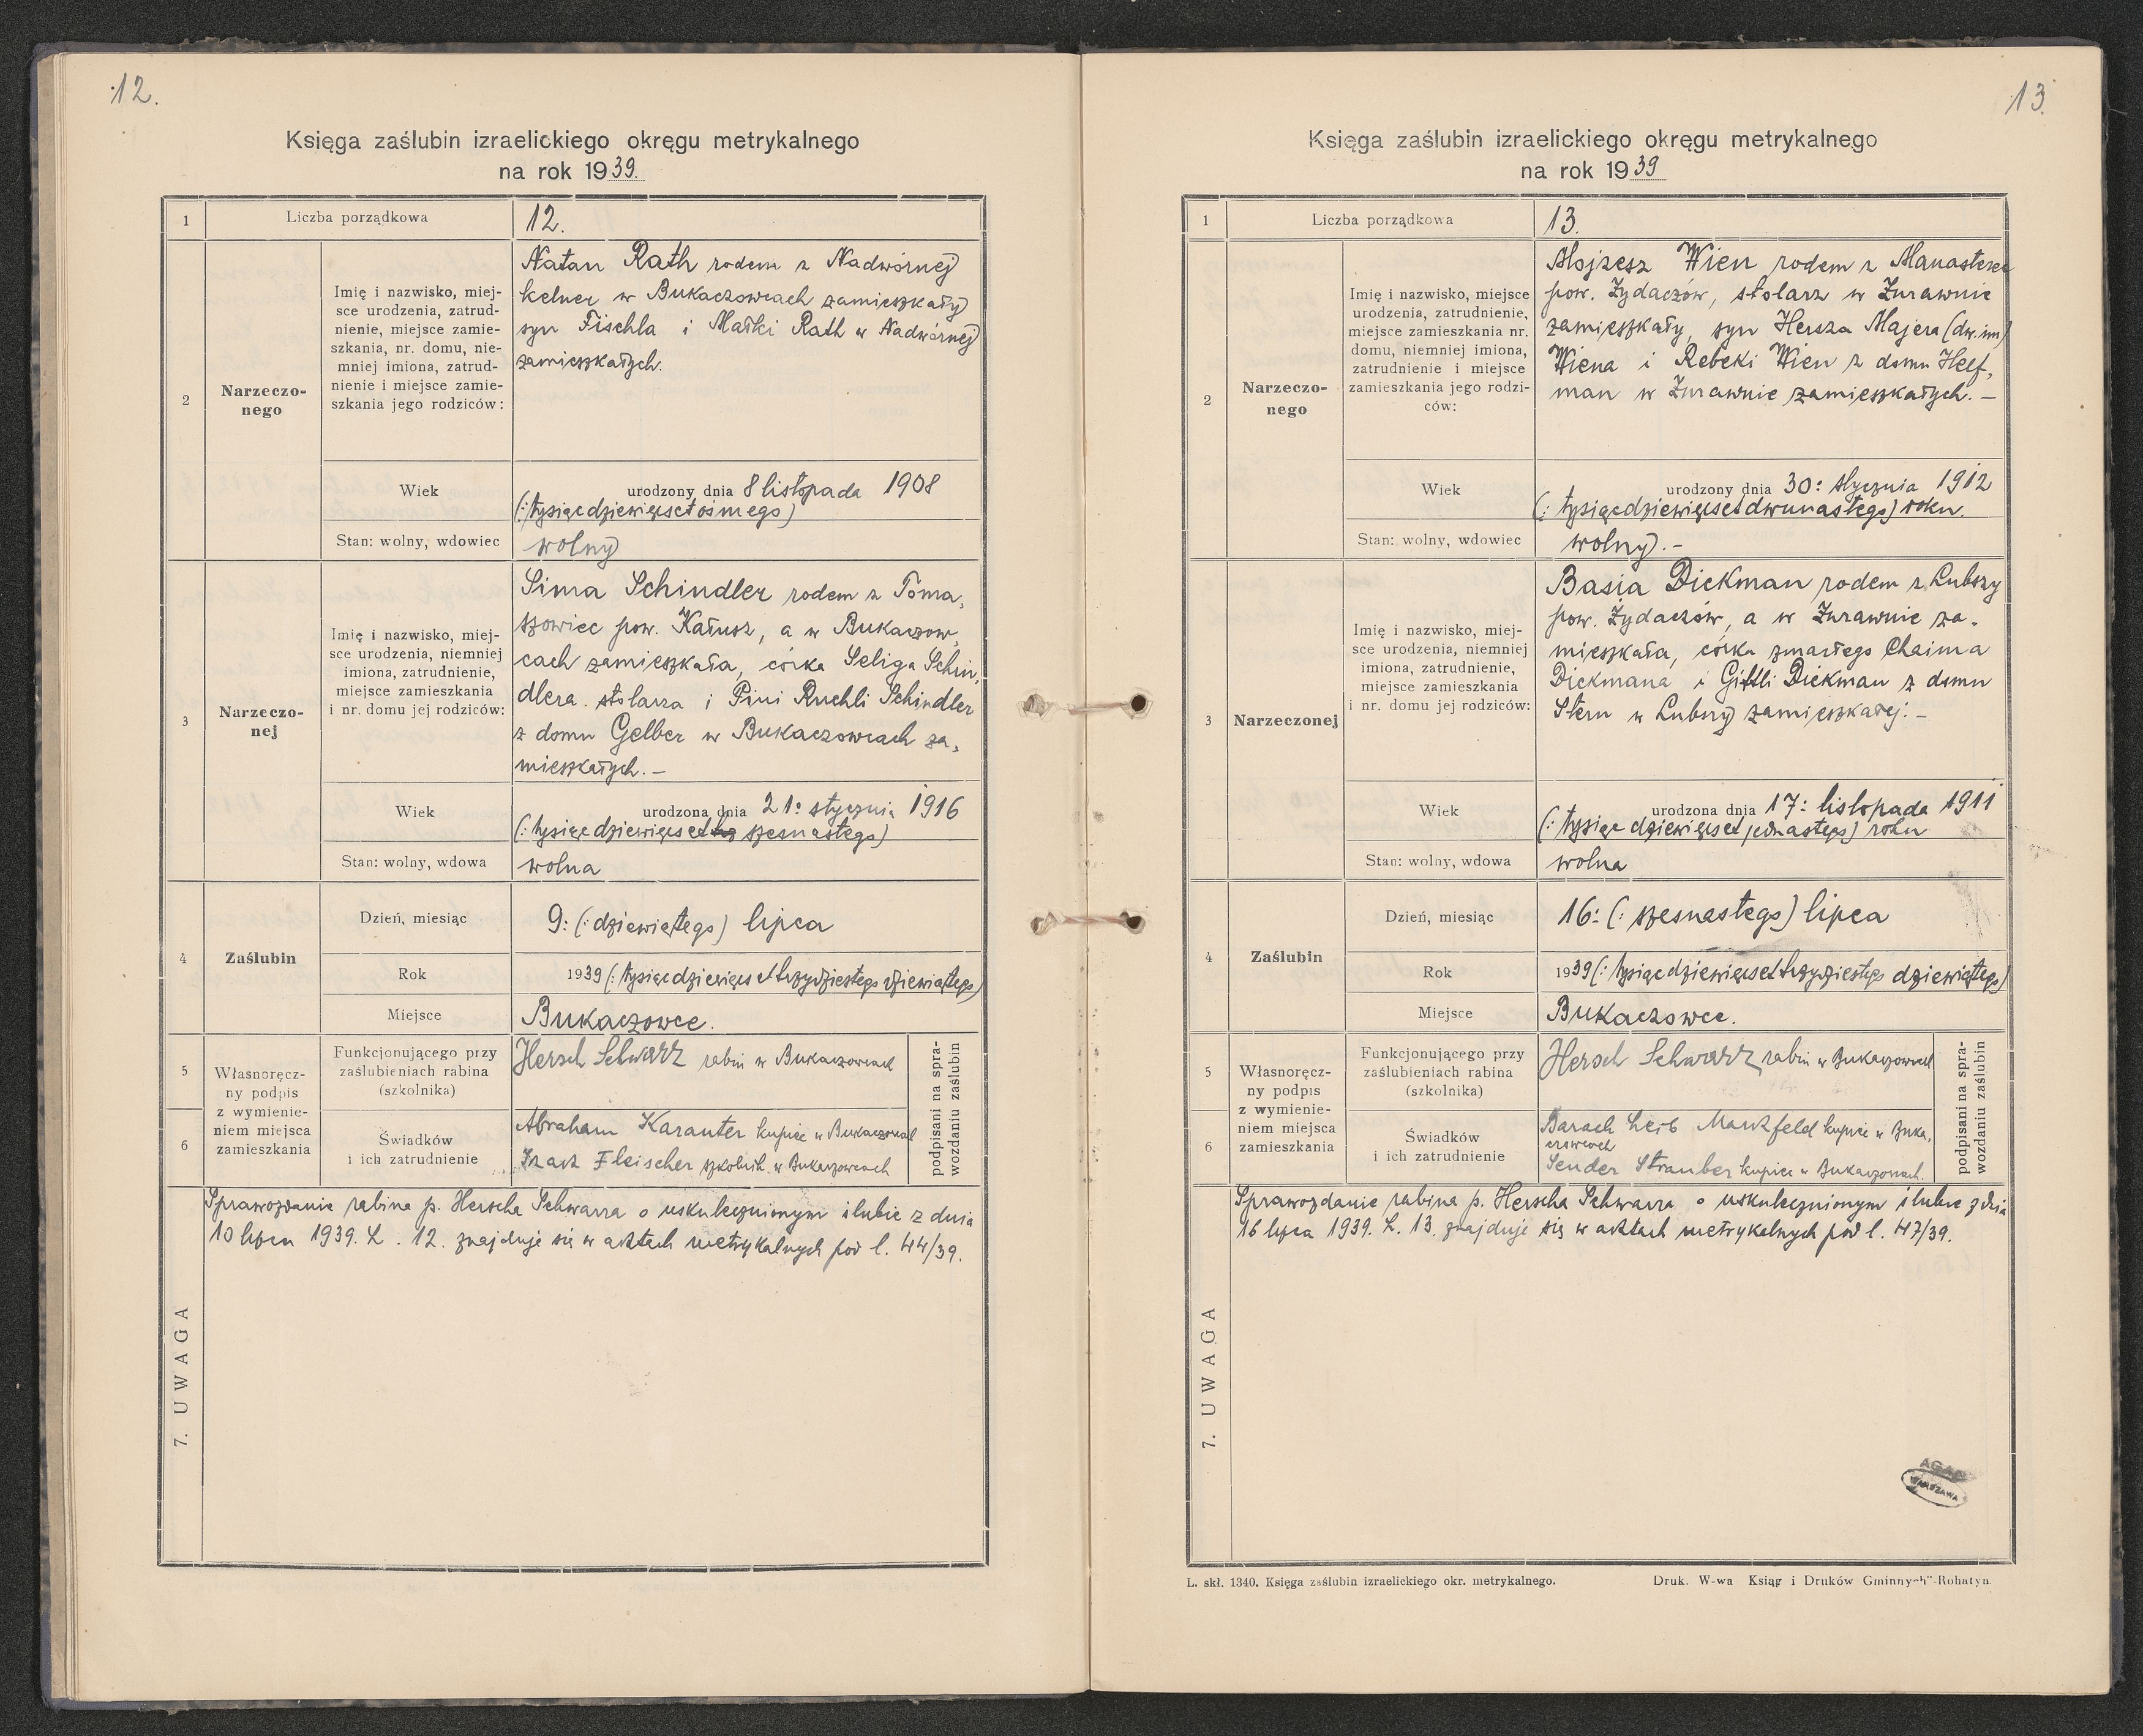 12.
Księga zaślubin izraelickiego okręgu metrykalnego
na rok 1939.
1
Liczba porządkowa
12.
2
Narzeczo-
nego
Imię i nazwisko, miej-
sce urodzenia, zatrud-
nienie, miejsce zamie-
szkania, nr. domu, nie-
mniej imiona, zatrud-
nienie i miejsce zamie-
szkania jego rodziców:
Natan Rath rodem z Nadwórnej
kelner w Bukaczowcach zamieszkały
syn Fischla i Małki Rath w Nadwórnej
zamieszkałych.
Wiek
urodzony dnia 8 listopada 1908
(: tysiącdziewięćset osmego)
Stan: wolny, wdowiec
wolny
3
Narzeczo-
nej
Imię i nazwisko, miej-
sce urodzenia, niemniej
imiona, zatrudnienie,
miejsce zamieszkania
i nr. domu jej rodziców:
Sima Schindler rodem z Toma,
szowiec pow. Kałusz, a w Bukaczow,
cach zamieszkała, córka Seliga Schin,
dlera stolarza i Pini Ruchli Schindler
z domu Gelber w Bukaczowcach za,
mieszkałych. –
Wiek
urodzona dnia 21: stycznia 1916
(: tysiąc dziewięćset szesnastego)
Stan: wolny, wdowa
wolna
4
Zaślubin
Dzień, miesiąc
9: (: dziewiątego) lipca
Rok
1939 (: tysiącdziewięćset trzydziestego dziewiątego)
Miejsce
Bukaczowce.
5
6
Własnoręcz-
ny podpis
z wymienie-
niem miejsca
zamieszkania
Funkcjonującego przy
zaślubieniach rabina
(szkolnika)
Hersch Schwarz rabin w Bukaczowcach
Świadków
i ich zatrudnienie
Abraham Karanter kupiec w Bukaczowcach
Izak Fleischer szkolnik w Bukaczowcach
podpisani na spra-
wozdaniu zaślubin
7. UWAGA
Sprawozdanie rabina p. Herscha Schwarza o uskutecznionym ślubie z dnia
10 lipca 1939. L. 12. znajduje się w aktach metrykalnych pod l. 44/39.
13.
Księga zaślubin izraelickiego okręgu metrykalnego
na rok 1939
1
Liczba porządkowa
13.
2
Narzeczo-
nego
Imię i nazwisko, miejsce
urodzenia, zatrudnienie,
miejsce zamieszkania nr.
domu, niemniej imiona,
zatrudnienie i miejsce
zamieszkania jego rodzi-
ców:
Mojzesz Wien rodem z
pow. Żydaczów, stolarz w Żurawnie
zamieszkały, syn Hersza Majera (dw. im)
Wiena i Rebeki Wien z domu Helf,
man w Żurawnie zamieszkałych. –
Wiek
urodzony dnia 30: stycznia 1912
(: tysiącdziewięćset dwunastego) roku.
Stan: wolny, wdowiec
wolny. –
3
Narzeczonej
Imię i nazwisko, miej-
sce urodzenia, niemniej
imiona, zatrudnienie,
miejsce zamieszkania
i nr. domu jej rodziców:
Basia Dickman rodem z Lubszy
pow. Żydaczów, a w Żurawnie za,
mieszkała, córka zmarłego Chaima
Dickmana i Gittli Dickman z domu
Stern w Lubszy zamieszkałej. –
Wiek
urodzona dnia 17: listopada 1911
(: tysiąc dziewięćset jednastego) roku
Stan: wolny, wdowa
wolna
4
Zaślubin
Dzień, miesiąc
16: (: szesnastego) lipca
Rok
1939 (: tysiącdziewięćset trzydziestego dziewiątego)
Miejsce
Bukaczowce.
5
6
Własnoręcz-
ny podpis
z wymienie-
niem miejsca
zamieszkania
Funkcjonującego przy
zaślubieniach rabina
(szkolnika)
Hersch Schwarz, rabin w Bukaczowcach
Świadków
i ich zatrudnienie
Barach Leib Markfeld kupiec w Buka,
czowcach
Sender Strauber kupiec w Bukaczowcach.
podpisani na spra-
wozdaniu zaślubin
7. UWAGA
Sprawozdanie rabina p. Herscha Schwarza o uskutecznionym ślubie z dnia
16 lipca 1939. L. 13. znajduje się w aktach metrykalnych pod l. 47/39.
AGAD
WARSZAWA
L. skł. 1340. Księga zaślubin izraelickiego okr. metrykalnego.
Druk. W-wa Ksiąg i Druków Gminnych"-Rohatyn.